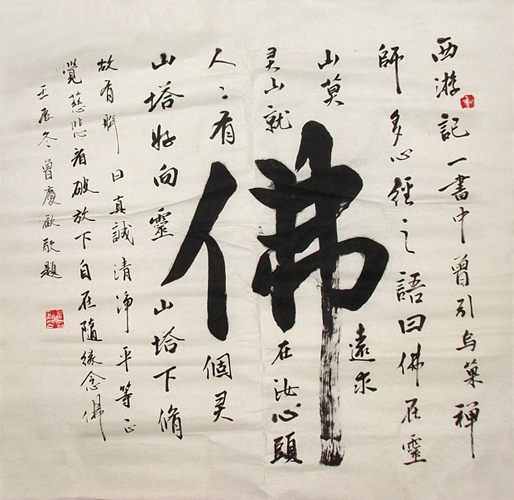 佛
西游記一書中曾引烏巢禪
師多心經之語曰佛在靈
山莫遠求
灵山就在汝心頭
人々有個灵
山塔好向靈山塔下脩
故有聯曰真誠清净平等正
覺慈悲看破放下自在隨緣念佛
壬辰冬曾慶敬題